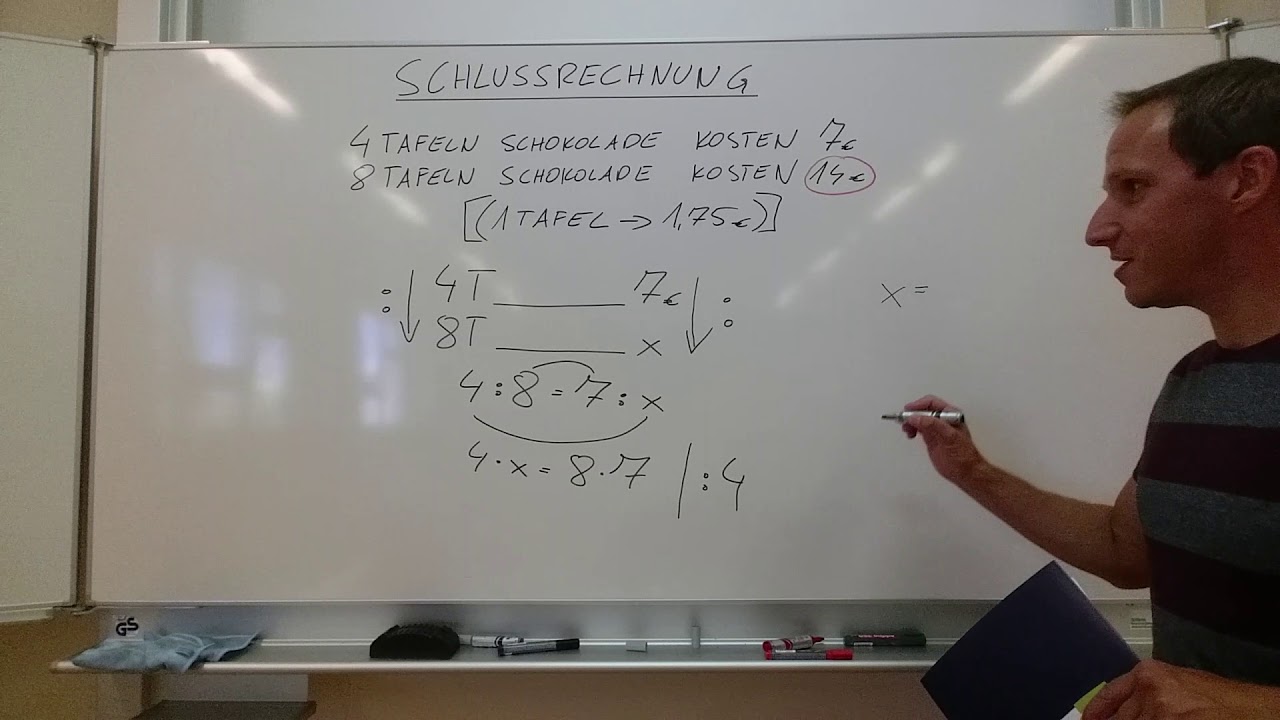 SCHLUSSRECHNUNG
4 TAFELN SCHOKOLADE KOSTEN 7€
8 TAFELN SCHOKOLADE KOSTEN 14€
[(1 TAFEL → 1,75€)]
: ↓ 4T ______ 7€ ↓ :
8T ______ x
x =
4 : 8 = 7 : x
4 · x = 8 · 7 | : 4
GS